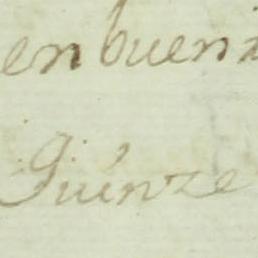 en buen
Quinze